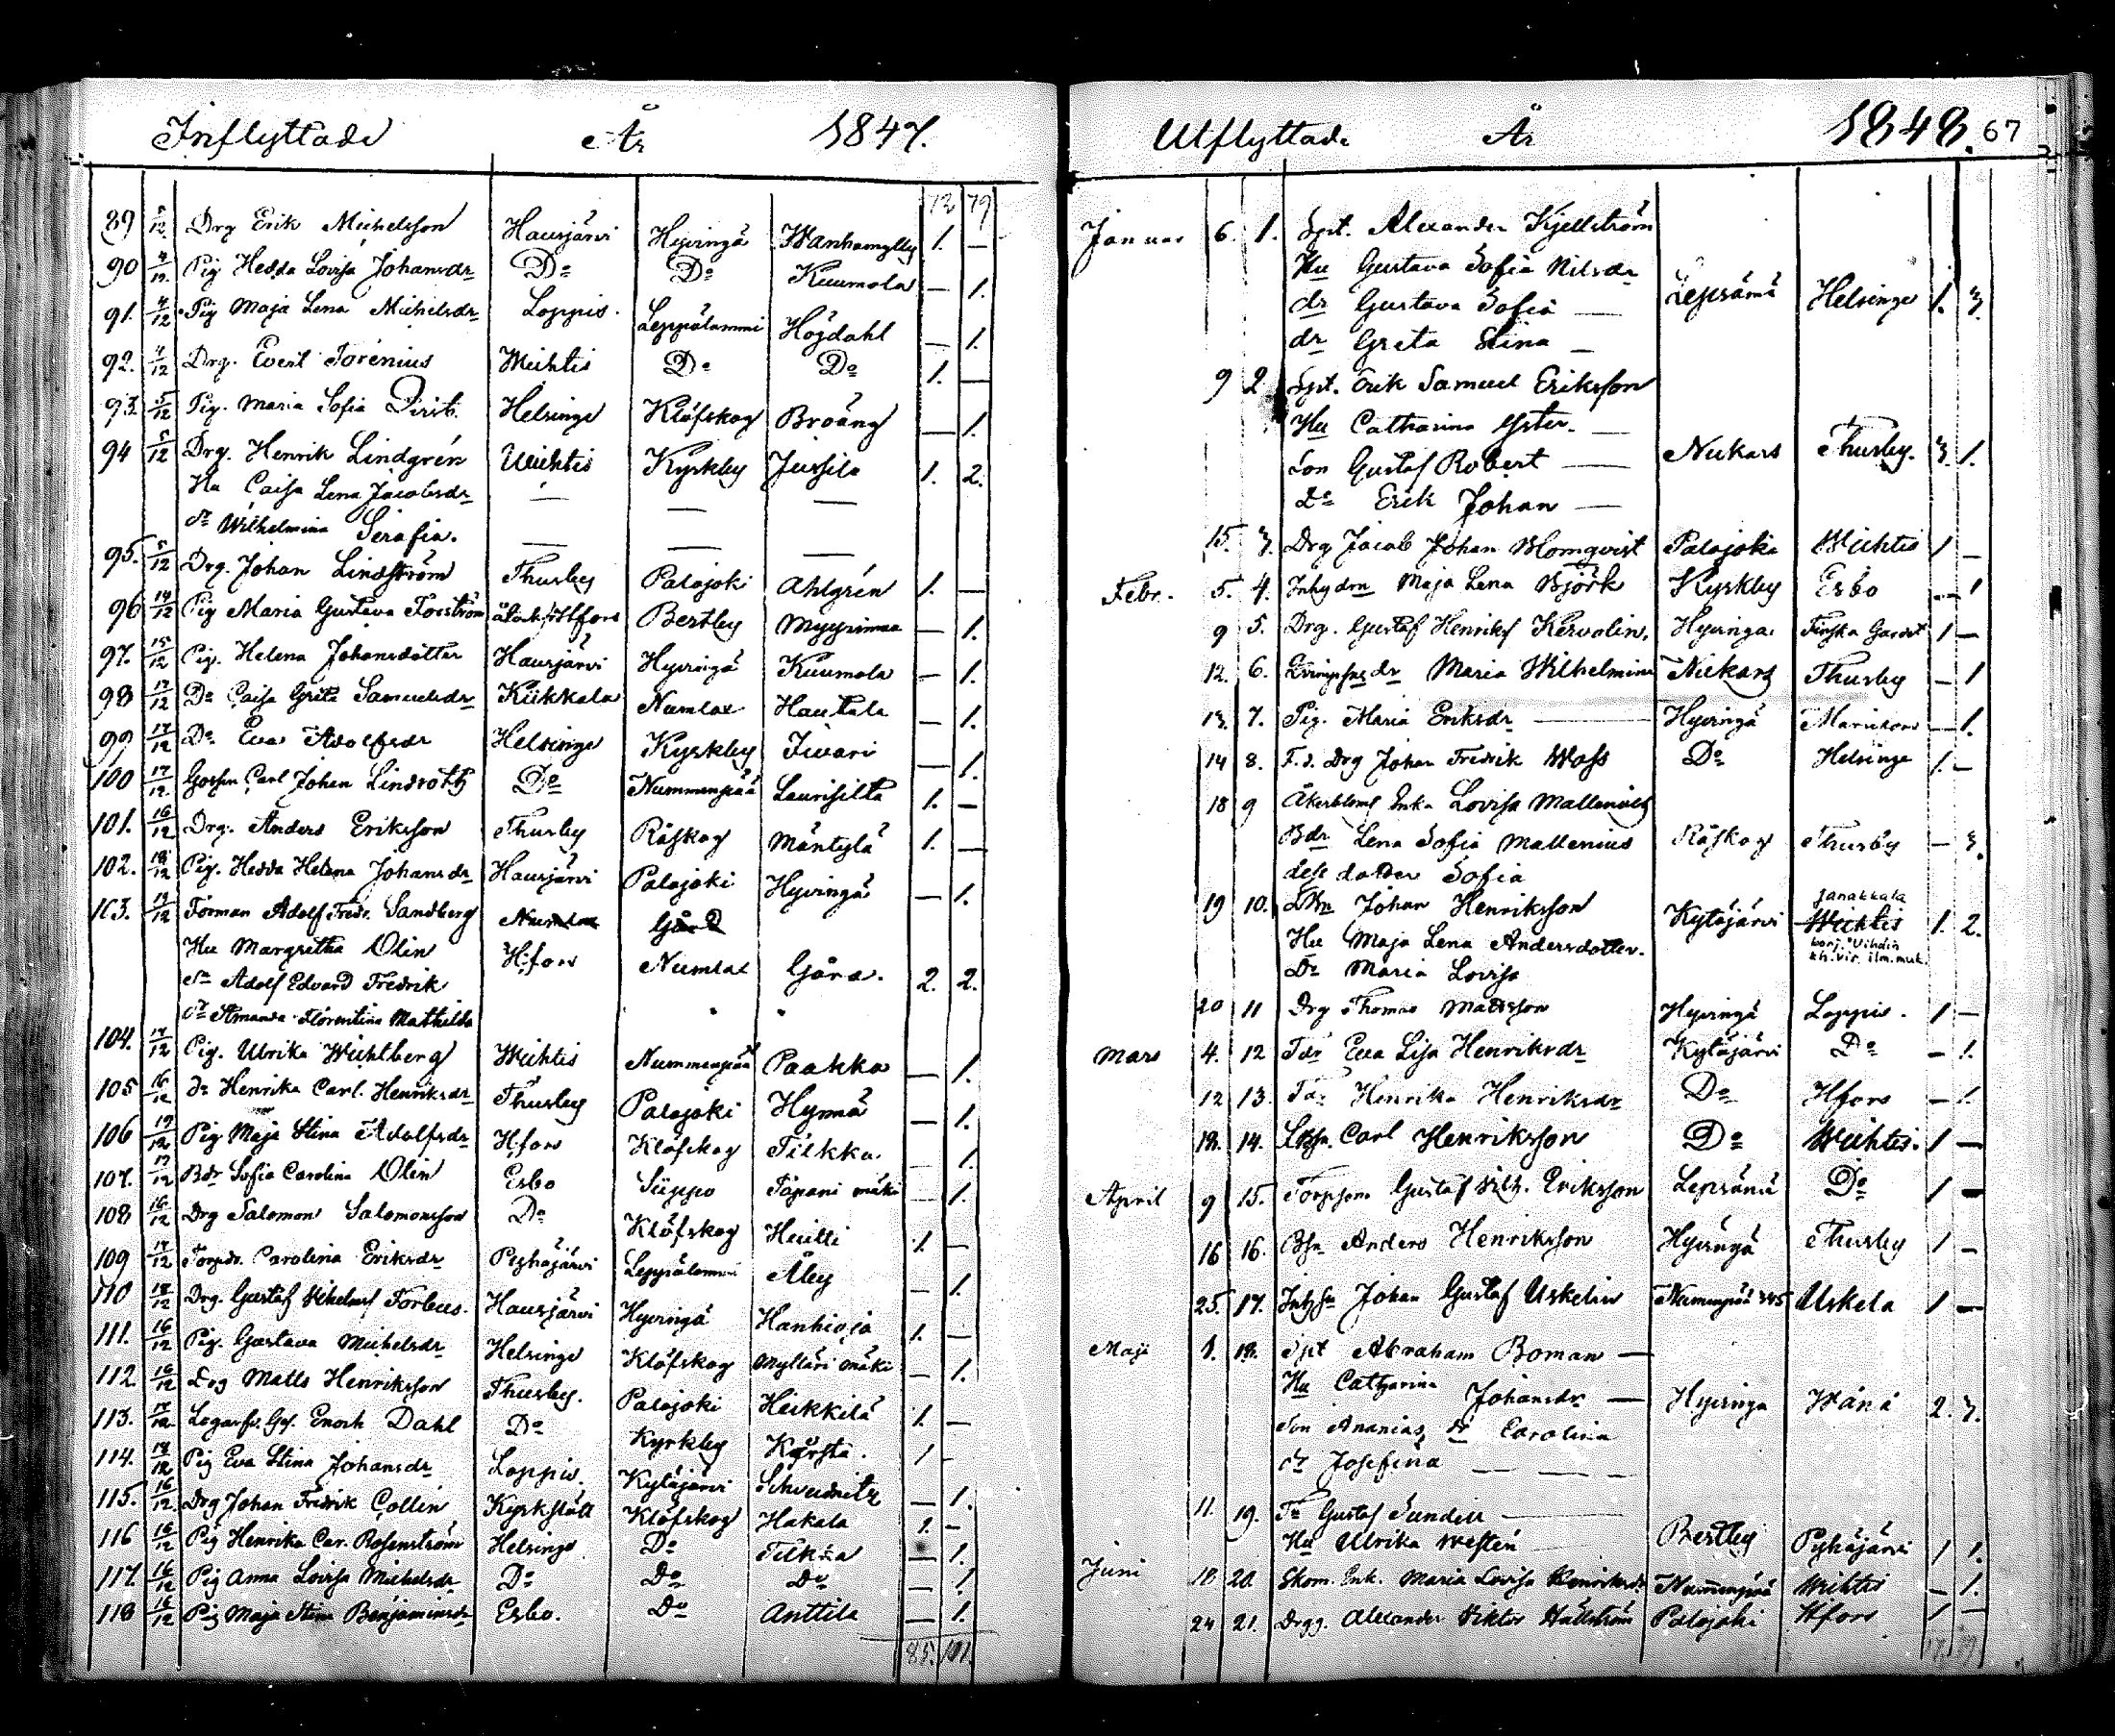 Inflyttade År 1847.
12 79
89 5/12 Drg Erik Michelsson Hausjärvi Hyvingä Wanhamylly 1. —
90 4/12 Pig Hedda Lovisa Johansdr Do Do Kuumola — 1.
91. 4/12 Pig Maja Lena Michelsdr Loppis. Leppälammi Högdahl — 1.
92. 4/12 Drg. Evert Torenius Wichtis Do Do 1. —
93. 5/12 Pig. Maria Sofia Helsinge Klöfskog Broäng — 1.
94 5/12 Drg. Henrik Lindgrén Wichtis Kyrkby Jussila 1. 2.
Hu Caisa Lena Jacobsdr — — —
dr Wilhelmina Serafia. — — —
95. 5/12 Drg. Johan Lindström Thusby Palojoki Ahlgrén 1. —
96 14/12 Pig Maria Gustava Forström Hfors Bertby Myyrimaa — 1.
97. 15/12 Pig. Helena Johansdotter Hausjärvi Hyvingä Kuumola — 1.
98 17/12 Do Caisa Greta Samuelsdr Kiikkala Numlax Hautala — 1.
99 17/12 Do Eva Adolfsdr Helsinge Kyrkby Iivari — 1.
100 17/12 Gossen Carl Johan Lindroth Do Nummenpää Laurisilta 1. —
101. 16/12 Drg. Anders Eriksson Thusby Råskog Mäntylä 1. —
102. 18/12 Pig. Hedda Helena Johansdr Hausjärvi Palojoki Hyvingä — 1.
103. 17/12 Torman Adolf Fredr. Sandberg Numlax Gård
Hu Margretha Olin Hfors Numlax Gård. 2. 2.
sn Adolf Edvard Fredrik
dr Amanda Florentina Mathilda
104. 17/12 Pig. Ulrika Wichtberg Wichtis Nummenpää Paakka — 1.
105 16/12 Do Henrika Carl. Henriksdr Thusby Palojoki Hynnä — 1.
106 19/12 Pig Maja Stina Adolfsdr Hfors Klöfskog Tilkka — 1.
107. 17/12 Bdr Sofia Carolina Olin Esbo Siippo Tapani mäki — 1.
108 16/12 Drg Salomon Salomonsson Do Klöfskog Heikki 1. —
109 17/12 Torpdr. Carolina Eriksdr Pyhäjärvi Leppälammi Åby — 1.
110 18/12 Drg. Gustaf Wilhelm Forbus. Hausjärvi Hyvingä Hanhioja 1. —
111. 16/12 Pig. Gustava Michelsdr Helsinge Klöfskog Mylläri mäki — 1.
112. 16/12 Drg Matts Henriksson Thusby. Palojoki Heikkilä 1. —
113. 17/12 Enoch Dahl Do Kyrkby Körsta. 1 -
114. 17/12 Pig Eva Stina Johansdr Loppis. Kytäjärvi Schveidnitz — 1.
115. 16/12 Drg Johan Fredrik Collin Kyrkslätt Klöfskog Hakala 1. —
116 16/12 Pig Henrika Car. Rosenström Helsinge Do Tilkka — 1.
117. 16/12 Pig Anna Lovisa Michelsdr Do Do Do — 1.
118 16/12 Pig Maja Stina Benjaminsdr Esbo. Do Anttila — 1.
85. 101.
Utflyttade År 1848. 67
Januar 6. 1. Spt. Alexander Kjellström
Hu Gustava Sofia Nilsdr
dr Gustava Sofia — Lepsämä Helsinge 1. 3.
dr Greta Stina —
9 2 Spt. Erik Samuel Eriksson
Hu Catharina Yster. —
Son Gustaf Robert — Nukars Thusby. 3. 1.
Do Erik Johan —
15. 3. Drg Jacob Johan Blomqvist Palojoki Wichtis 1 —
Febr. 5. 4. Inhydrn Maja Lena Björk Kyrkby Esbo — 1
9 5. Drg. Gustaf Henriks Kervolin. Hyvinga. Finska Gardet 1 —
12. 6. dr Maria Wilhelmina Nukars Thusby — 1
13. 7. Pig. Maria Eriksdr — Hyvingä — 1.
14 8. F.d. Drg Johan Fredrik Wass Do Helsinge 1. —
18 9 Åkerbloms Enka Lovisa Mallenius
Bdr Lena Sofia Mallenius Råskog Thusby — 3.
dess dotter Sofia
19 10. Johan Henriksson Kytäjärvi Janakkala Wichtis 1. 2.
Hu Maja Lena Andersdotter. korj. Vihdin
Dr Maria Lovisa kh.vir. ilm.muk.
20 11 Drg Thomas Mattsson Hyvingä Loppis. 1 —
Mars 4. 12 Tdr Eva Lisa Henriksdr Kytäjärvi Do — 1.
12 13. Tdr Henrika Henriksdr Do Hfors — 1.
18. 14. Carl Henriksson Do Wichtis. 1 —
April 9 15. Torpson Gustaf Wilh. Eriksson Lepsämä Do 1 —
16 16. Bsn Anders Henriksson Hyvingä Thusby 1 —
25. 17. Johan Gustaf Uskelin Nummenpää Uskela 1 —
Maji 1. 18. Spt Abraham Boman —
Hu Catharina Johansdr — Hyvinga Wånå 2. 3.
Son Ananias, dr Carolina
dr Josefina — — —
11. 19. Tr Gustaf Sundell —
Hu Ulrika Westén Bertby Pyhäjärvi 1 1.
Juni 18 20. Skom. Enk. Maria Lovisa Henriksdr Nummenpää Wichtis — 1.
24 21. Drgg. Alexander Viktor Hällström Palojoki Hfors 1 —